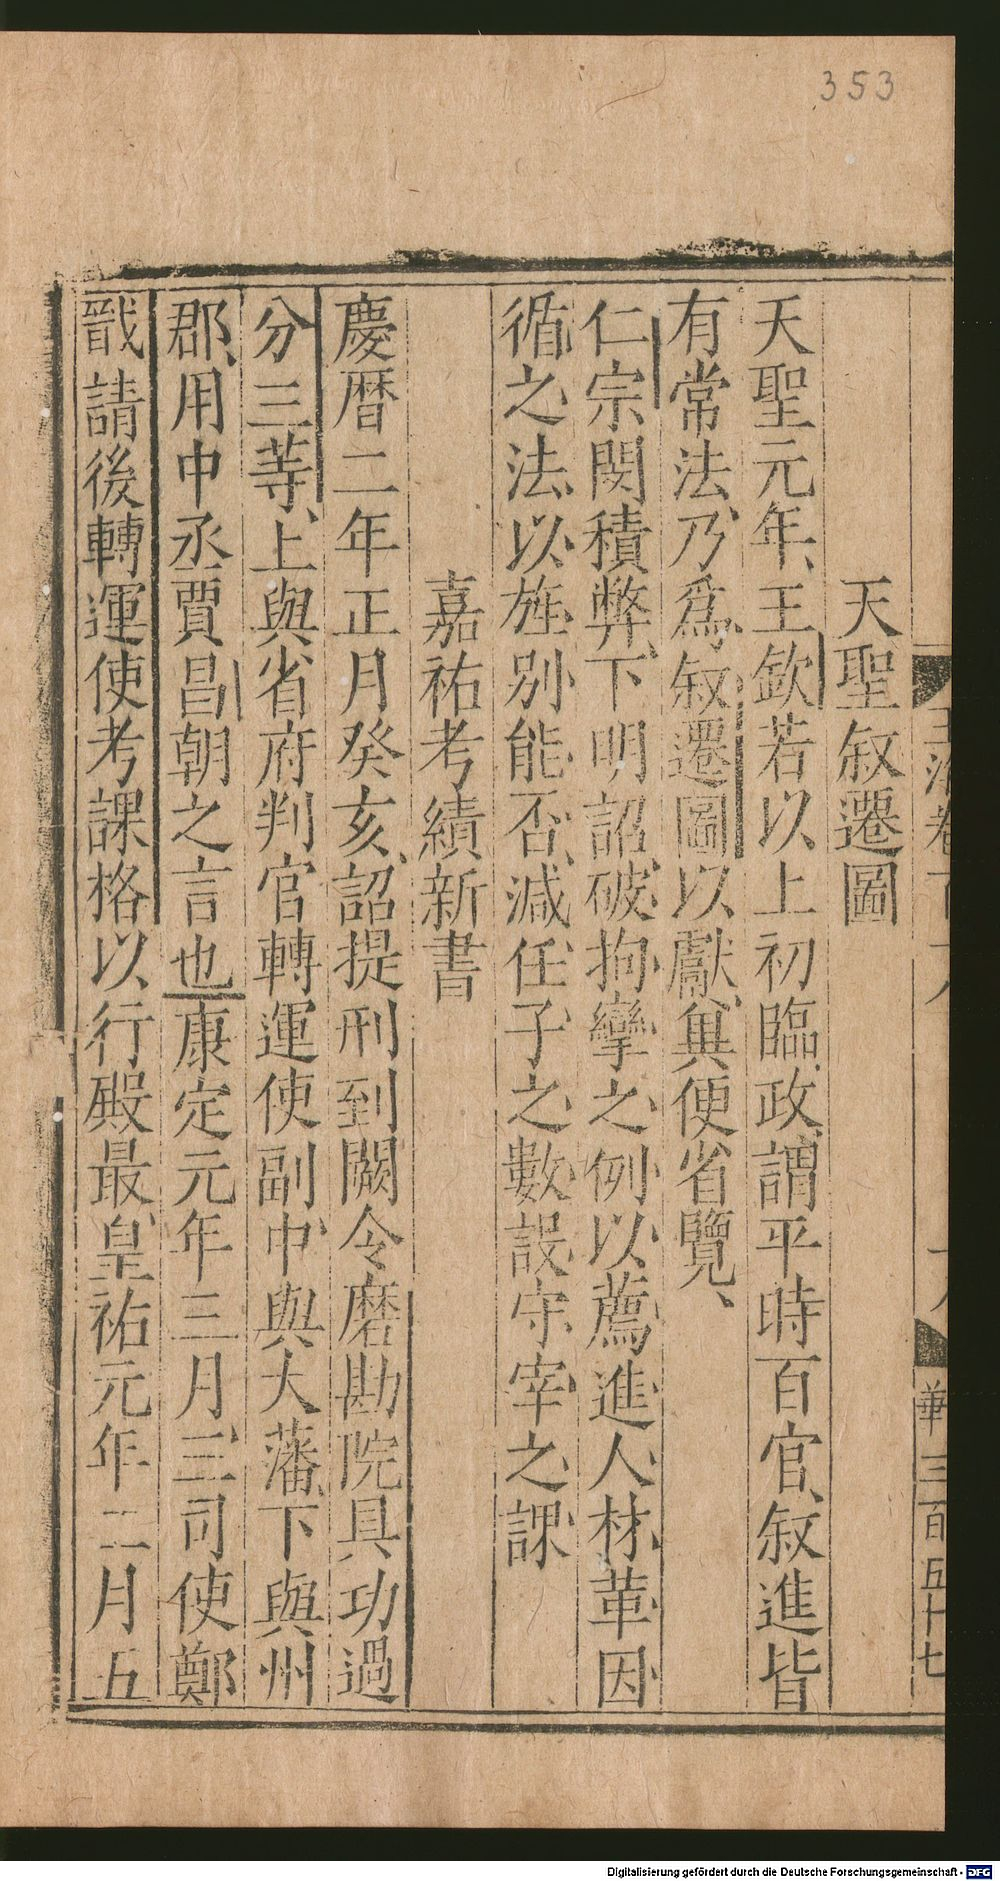 353
天聖叙遷圖
天聖元年、王欽若以上初臨政、謂平時百官、叙進皆
有常法、乃爲叙遷圖以獻、兾便省覽、
仁宗閔積弊、下明詔、破拘攣之例、以薦進人材、革因
循之法、以旌别能否、減任子之數、設守宰之課
嘉祐考績新書
慶曆二年正月癸亥、詔提刑到闕令磨勘院具功過
分三等、上與省府判官轉運使副、中與大藩、下與州
郡、用中丞賈昌朝之言也康定元年三月、三司使鄭
戩請後轉運使考課格以行殿最、皇祐元年二月五
華三百五十七
Digitalisierung gefördert durch die Deutsche Forschungsgemeinschaft - DFG